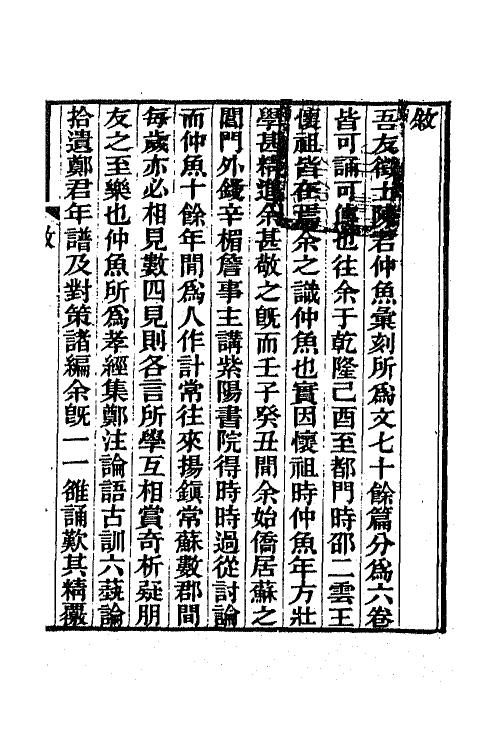 敘
吾友徵士陳君仲魚彙刻所爲文七十餘篇分爲六卷
皆可誦可傳也往余于乾隆己酉至都門時邵二雲王
懷祖皆在焉余之識仲魚也實因懷祖時仲魚年方壯
學甚精進余甚敬之旣而壬子癸丑間余始僑居蘇之
閶門外錢辛楣詹事主講紫陽書院得時時過從討論
而仲魚十餘年間爲人作計常往來揚鎭常蘇數郡間
每歲亦必相見數四見則各言所學互相賞奇析疑朋
友之至樂也仲魚所爲孝經集鄭注論語古訓六藝論
拾遺鄭君年譜及對策諸編余旣一一雒誦歎其精覈
敘